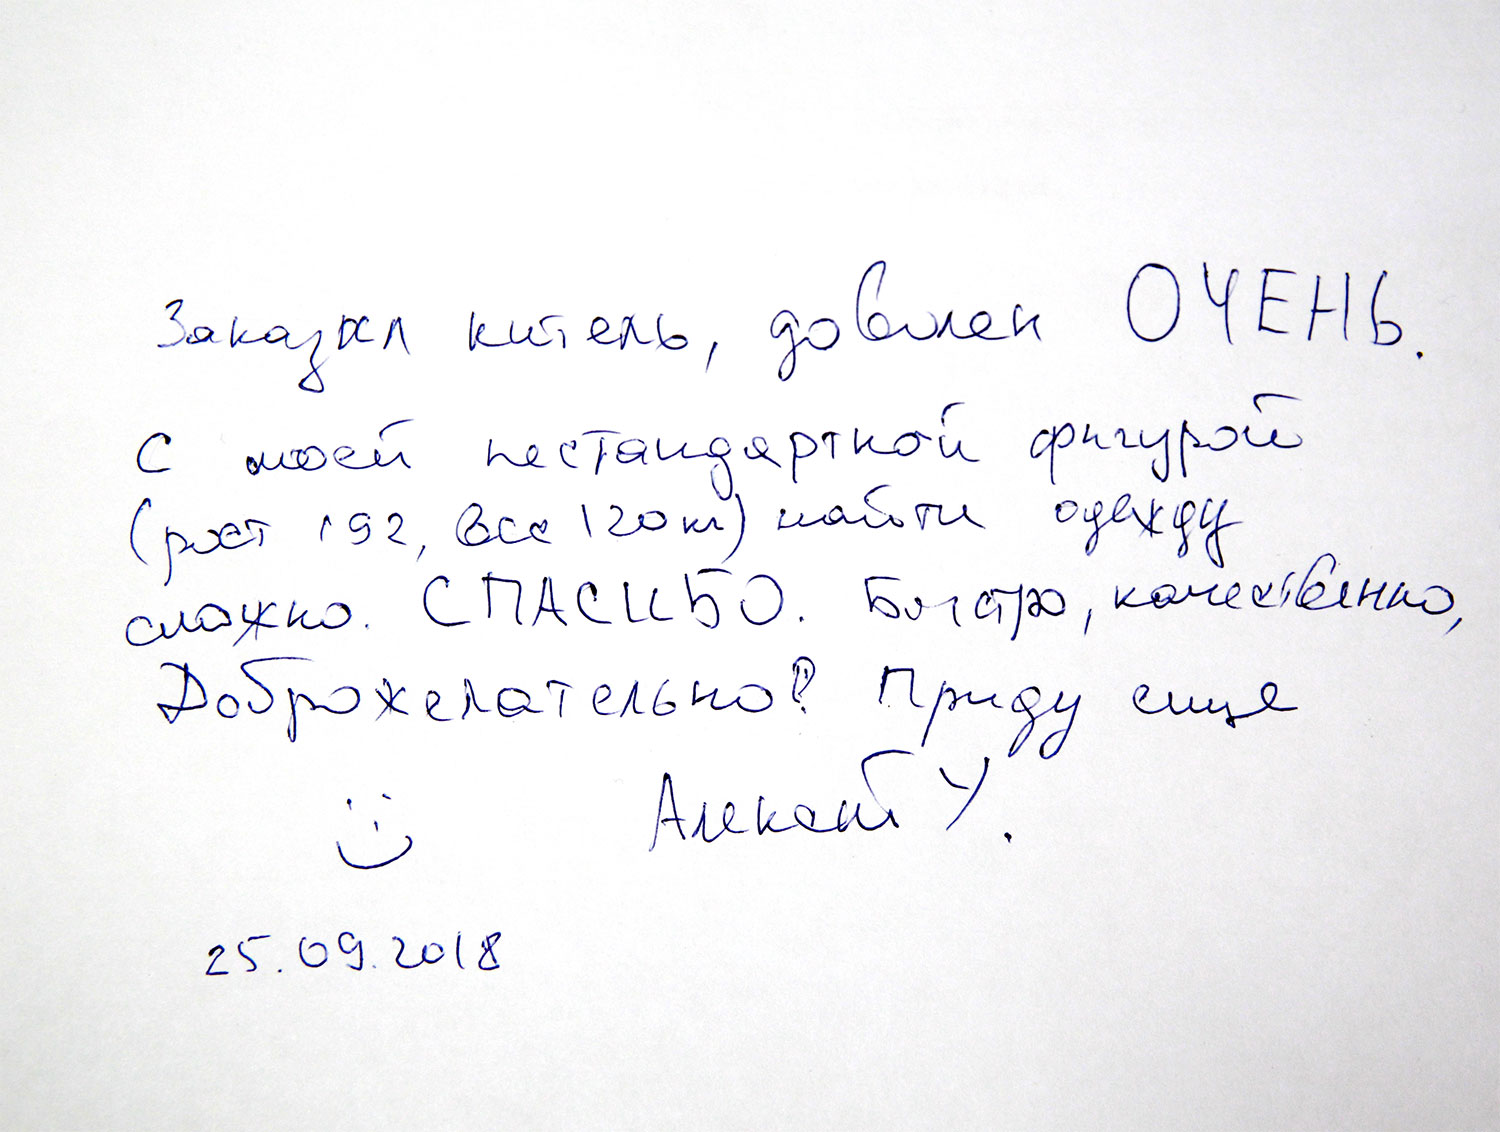 Заказал китель, доволен ОЧЕНЬ.
С моей нестандартной фигурой
(рост 192, вес 120 кг) найти одежду
сложно. СПАСИБО. Быстро, качественно,
Доброжелательно! Приду еще
У.
25.09.2018